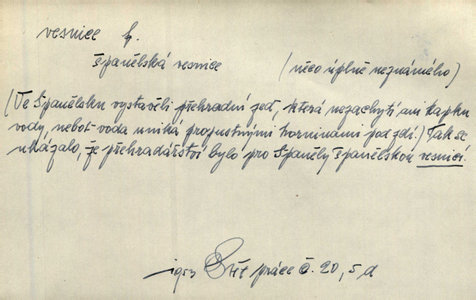 vesnice f.
španělská vesnice (něco úplně neznámého)
(Ve Španělsku vystavěli přehradní zeď, která nezachytí ani kapku
vody, neboť voda uniká propustnými horninami pod zdí.) Tak se
ukázalo, že přehradářství bylo pro Španěly španělskou vesnicí.
Svět práce č. 20, 5, d